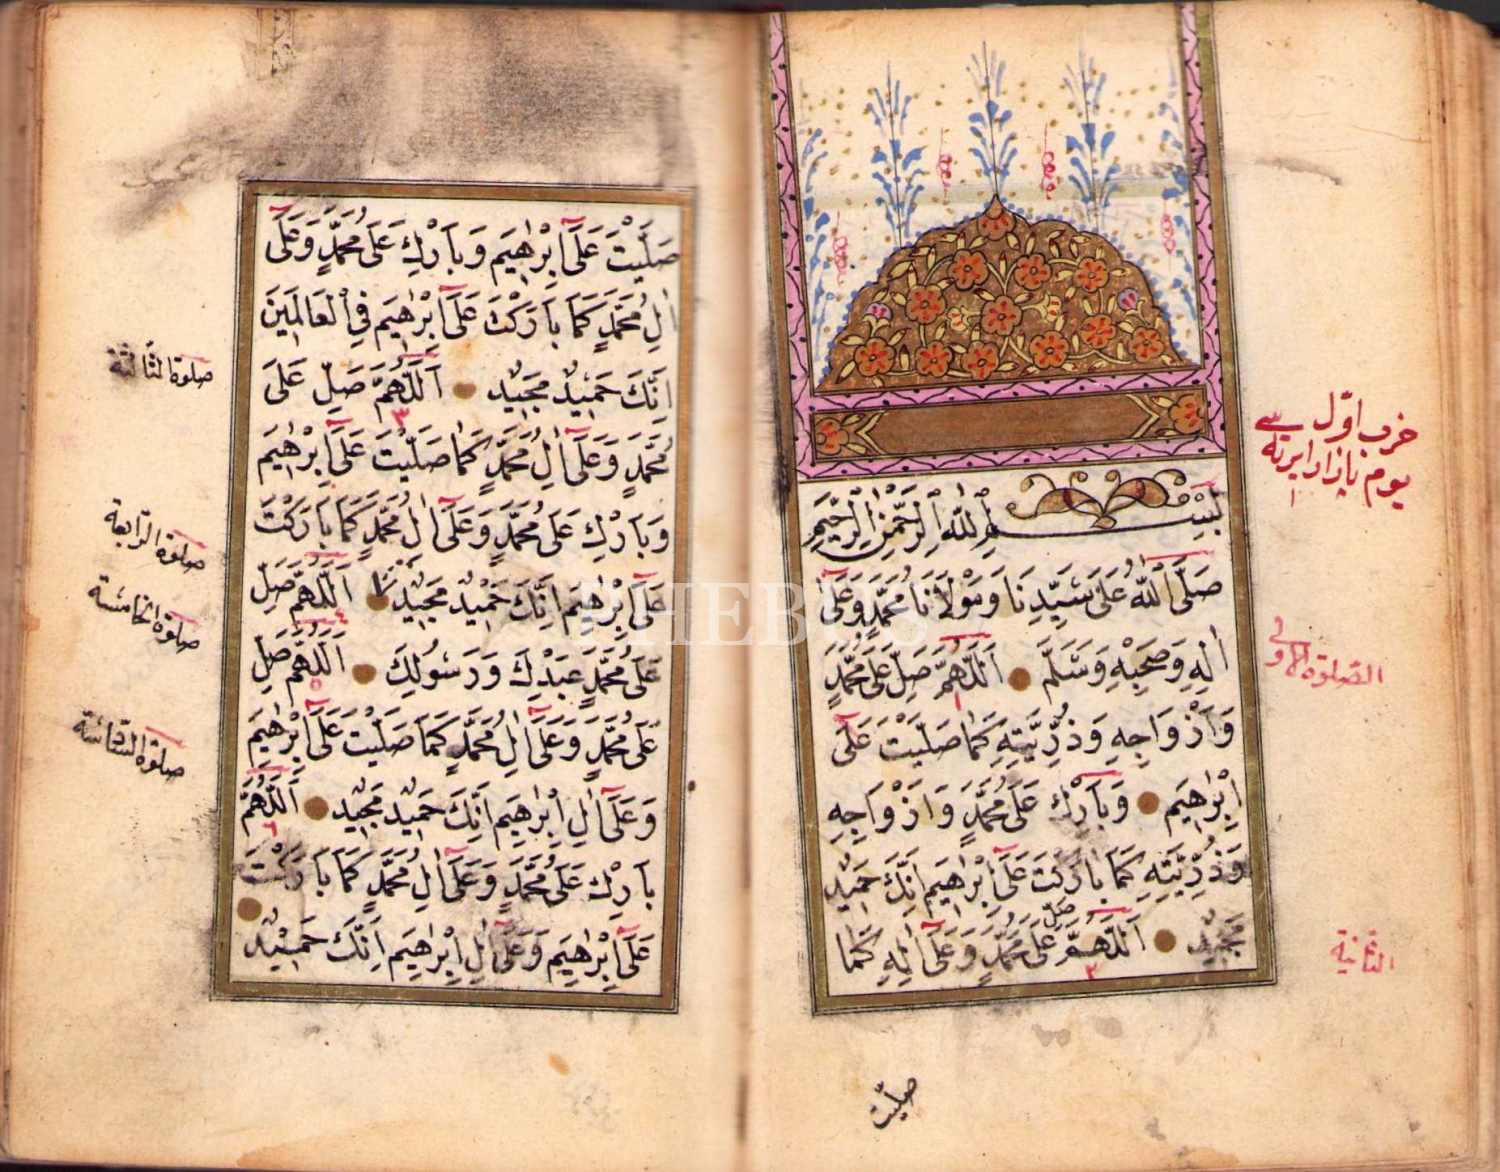 بِسْمِ اللهِ الرَّحْمٰنِ الرَّحِيمِ
صَلَّى اللهُ عَلَى سَيِّدِنَا وَمَوْلَانَا مُحَمَّدٍ وَعَلَى
اٰلِهِ وَصَحْبِهِ وَسَلَّمَ اَللّٰهُمَّ صَلِّ عَلَى مُحَمَّدٍ
١
وَاَزْوَاجِهِ وَذُرِّيَّتِهِ كَمَا صَلَّيْتَ عَلَى
اِبْرٰهِيمَ وَبَارِكْ عَلَى مُحَمَّدٍ وَاَزْوَاجِهِ
وَذُرِّيَّتِهِ كَمَا بَارَكْتَ عَلَى اِبْرٰهِيمَ اِنَّكَ حَمِيدٌ
مَجِيدٌ اَللّٰهُمَّ صَلِّ عَلَى مُحَمَّدٍ وَعَلَى اٰلِهِ كَمَا
٢
صليت
حزب اوّل
يوم بازار ايرته سى
١
الصلوة الاولى
الثانية
صَلَّيْتَ عَلَى اِبْرٰهِيمَ وَبَارِكْ عَلَى مُحَمَّدٍ وَعَلَى
اٰلِ مُحَمَّدٍ كَمَا بَارَكْتَ عَلَى اِبْرٰهِيمَ فِي الْعَالَمِينَ
اِنَّكَ حَمِيدٌ مَجِيدٌ اَللّٰهُمَّ صَلِّ عَلَى
٣
مُحَمَّدٍ وَعَلَى اٰلِ مُحَمَّدٍ كَمَا صَلَّيْتَ عَلَى اِبْرٰهِيمَ
وَبَارِكْ عَلَى مُحَمَّدٍ وَعَلَى اٰلِ مُحَمَّدٍ كَمَا بَارَكْتَ
عَلَى اِبْرٰهِيمَ اِنَّكَ حَمِيدٌ مَجِيدٌ اَللّٰهُمَّ صَلِّ
٤
عَلَى مُحَمَّدٍ عَبْدِكَ وَرَسُولِكَ اَللّٰهُمَّ صَلِّ
٥
عَلَى مُحَمَّدٍ وَعَلَى اٰلِ مُحَمَّدٍ كَمَا صَلَّيْتَ عَلَى اِبْرٰهِيمَ
وَعَلَى اٰلِ اِبْرٰهِيمَ اِنَّكَ حَمِيدٌ مَجِيدٌ اَللّٰهُمَّ
٦
بَارِكْ عَلَى مُحَمَّدٍ وَعَلَى اٰلِ مُحَمَّدٍ كَمَا بَارَكْتَ
عَلَى اِبْرٰهِيمَ وَعَلَى اٰلِ اِبْرٰهِيمَ اِنَّكَ حَمِيدٌ
صلوة الثالثة
صلوة الرابعة
صلوة الخامسة
صلوة السادسة
PHEBUS